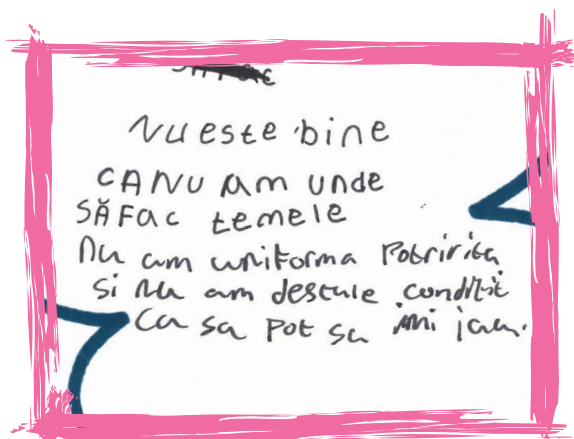 Nu este bine
CA NU Am unde
SĂ FAC temele
Nu am uniforma Potririta
si Nu am destule conditii
Ca sa Pot sa imi iau.